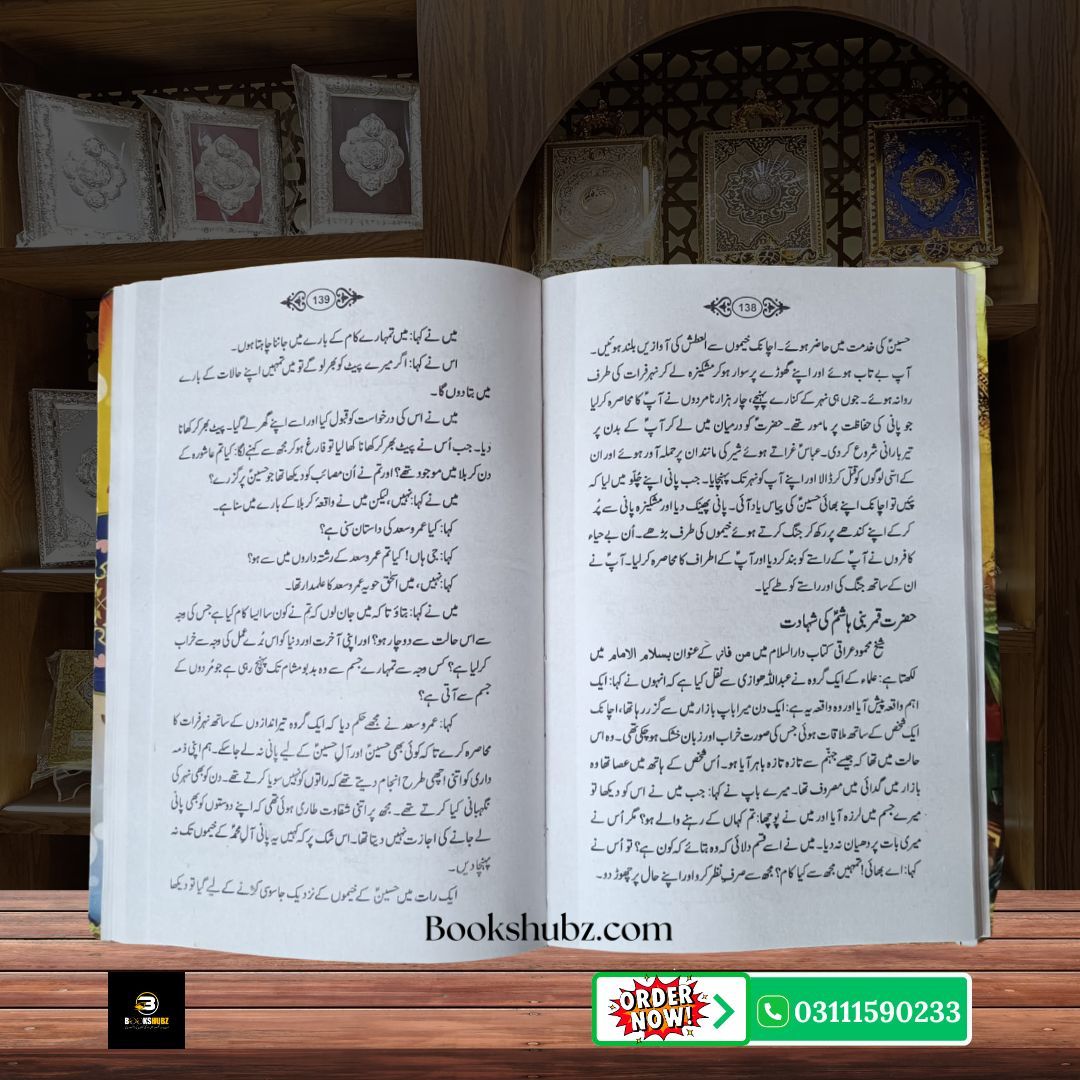 138
حسینؑ کی خدمت میں حاضر ہوئے۔ اچانک خیموں سے العطش کی آوازیں بلند ہوئیں۔
آپ بے تاب ہوئے اور اپنے گھوڑے پر سوار ہو کر مشکیزہ لے کر نہر فرات کی طرف
روانہ ہوئے۔ جوں ہی نہر کے کنارے پہنچے، چار ہزار نامردوں نے آپؑ کا محاصرہ کر لیا
جو پانی کی حفاظت پر مامور تھے۔ حضرتؑ کو درمیان میں لے کر آپؑ کے بدن پر
تیر بارانی شروع کر دی۔ عباسؑ غراتے ہوئے شیر کی مانند ان پر حملہ آور ہوئے اور ان
کے اسّی لوگوں کو قتل کر ڈالا اور اپنے آپ کو نہر تک پہنچایا۔ جب پانی اپنے چلّو میں لیا کہ
پئیں تو اچانک اپنے بھائی حسینؑ کی پیاس یاد آئی۔ پانی پھینک دیا اور مشکیزہ پانی سے پُر
کر کے اپنے کندھے پر رکھ کر جنگ کرتے ہوئے خیموں کی طرف بڑھے۔ اُن بے حیاء
کافروں نے آپؑ کے راستے کو بند کر دیا اور آپؑ کے اطراف کا محاصرہ کر لیا۔ آپؑ نے
ان کے ساتھ جنگ کی اور راستے کو طے کیا۔
حضرت قمر بنی ہاشمؑ کی شہادت
شیخ محمود عراقی کتاب دارالسلام میں من فاز کے عنوان بسلام الامام میں
لکھتا ہے: علماء کے ایک گروہ نے عبداللہ ھوازی سے نقل کیا ہے کہ انہوں نے کہا: ایک
اہم واقعہ پیش آیا اور وہ واقعہ یہ ہے: ایک دن میرا باپ بازار میں سے گزر رہا تھا، اچانک
ایک شخص کے ساتھ ملاقات ہوئی جس کی صورت خراب اور زبان خشک ہو چکی تھی۔ وہ اس
حالت میں تھا کہ جیسے جہنّم سے تازہ تازہ باہر آیا ہو۔ اُس شخص کے ہاتھ میں عصا تھا وہ
بازار میں گدائی میں مصروف تھا۔ میرے باپ نے کہا: جب میں نے اس کو دیکھا تو
میرے جسم میں لرزہ آیا اور میں نے پوچھا: تم کہاں کے رہنے والے ہو؟ مگر اُس نے
میری بات پر دھیان نہ دیا۔ میں نے اسے قسم دلائی کہ وہ بتائے کہ کون ہے؟ تو اُس نے
کہا: اے بھائی! تمہیں مجھ سے کیا کام؟ مجھ سے صرفِ نظر کرو اور اپنے حال پر چھوڑ دو۔
139
میں نے کہا: میں تمہارے کام کے بارے میں جاننا چاہتا ہوں۔
اس نے کہا: اگر میرے پیٹ کو بھر لو گے تو میں تمہیں اپنے حالات کے بارے
میں بتا دوں گا۔
میں نے اس کی درخواست کو قبول کیا اور اسے اپنے گھر لے گیا۔ پیٹ بھر کر کھانا
دیا۔ جب اُس نے پیٹ بھر کر کھانا کھا لیا تو فارغ ہو کر مجھ سے کہنے لگا: کیا تم عاشورہ کے
دن کربلا میں موجود تھے؟ اور تم نے اُن مصائب کو دیکھا تھا جو حسینؑ پر گزرے؟
میں نے کہا: نہیں، لیکن میں نے واقعۂ کربلا کے بارے میں سنا ہے۔
کہا: کیا عمرو سعد کی داستان سنی ہے؟
کہا: جی ہاں! کیا تم عمرو سعد کے رشتہ داروں میں سے ہو؟
کہا: نہیں، میں اسحٰق حویہ عمرو سعد کا علمدار تھا۔
میں نے کہا: بتاؤ تا کہ میں جان لوں کہ تم نے کون سا ایسا کام کیا ہے جس کی وجہ
سے اس حالت سے دوچار ہو؟ اور اپنی آخرت اور دنیا کو اس بُرے عمل کی وجہ سے خراب
کر لیا ہے؟ کس وجہ سے تمہارے جسم سے وہ بدبو مشام تک پہنچ رہی ہے جو مُردوں کے
جسم سے آتی ہے؟
کہا: عمرو سعد نے مجھے حکم دیا کہ ایک گروہ تیراندازوں کے ساتھ نہر فرات کا
محاصرہ کرے تا کہ کوئی بھی حسینؑ اور آل حسینؑ کے لیے پانی نہ لے جا سکے۔ ہم اپنی ذمہ
داری کو اتنی اچھی طرح انجام دیتے تھے کہ راتوں کو نہیں سویا کرتے تھے۔ دن کو بھی نہر کی
نگہبانی کیا کرتے تھے۔ مجھ پر اتنی شقاوت طاری ہوئی تھی کہ اپنے دوستوں کو بھی پانی
لے جانے کی اجازت نہیں دیتا تھا۔ اس شک پر کہ کہیں یہ پانی آل محمدؐ کے خیموں تک نہ
پہنچا دیں۔
ایک رات میں حسینؑ کے خیموں کے نزدیک جاسوسی کرنے کے لیے گیا تو دیکھا
Bookshubz.com
BOOKSHUBZ
ORDER
NOW!
03111590233